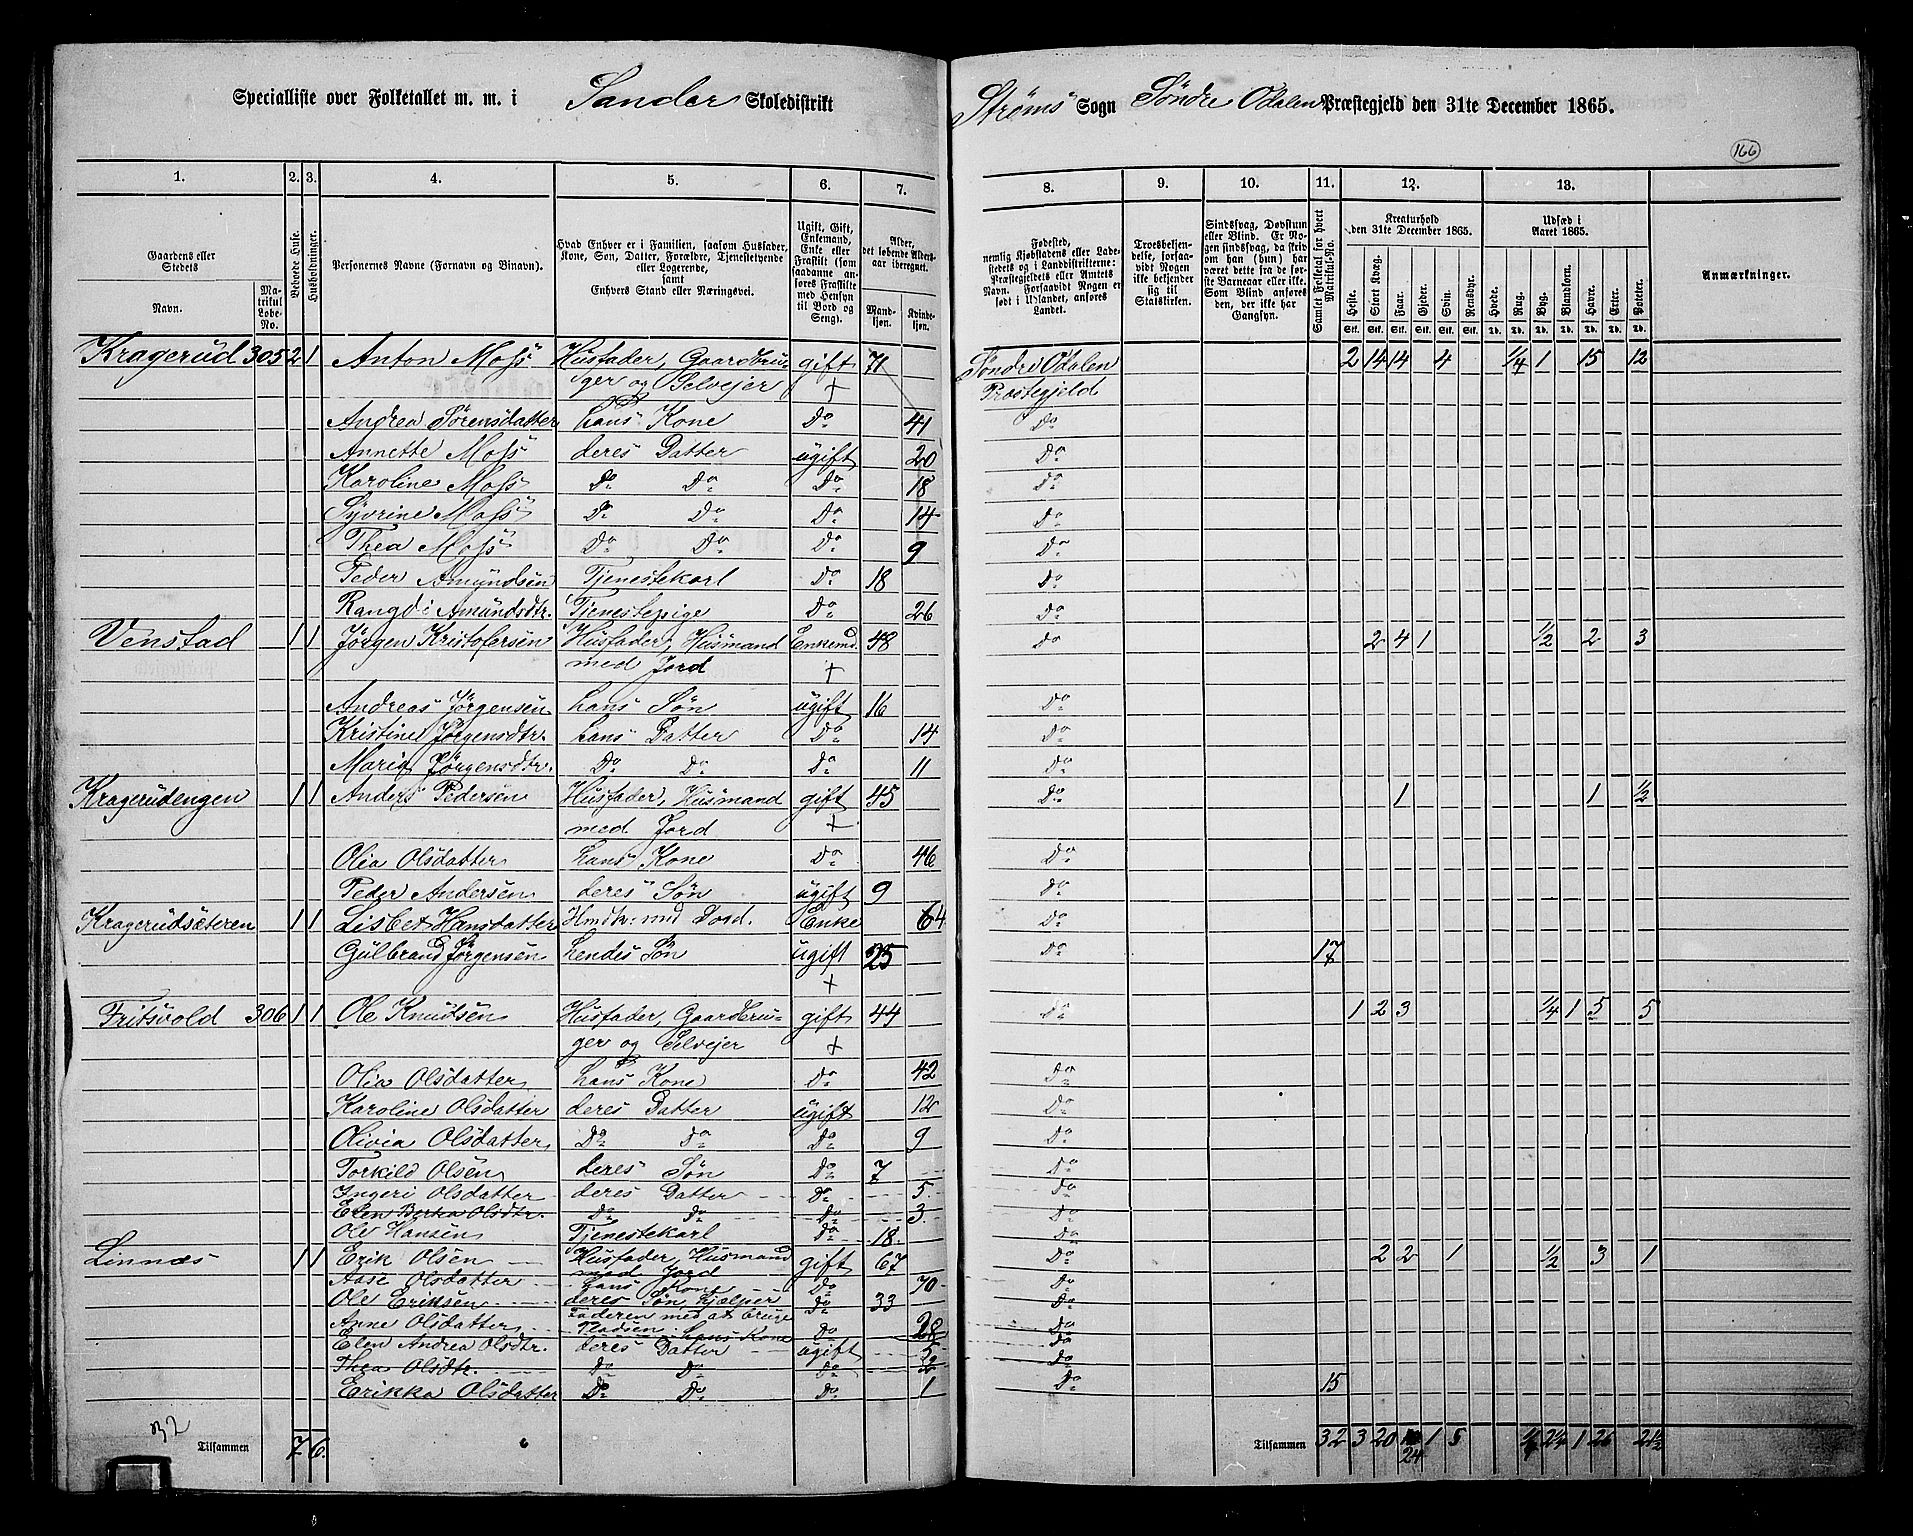 Specialliste over Folketallet m. m. i Sander Skoledistrikt Strøms Sogn Søndre Odalen Præstegjeld den 31te December 1865.
166
1. 2. 3. 4. 5. 6. 7. 8. 9. 10. 11. 12. 13.
Gaardens eller Stedets
Navn.
Matrikul Lobe-No.
Beboede Huse.
Husholdninger.
Personernes Navne (Fornavn og Binavn).
Hvad Enhver er i Familien, saasom Husfader, Kone, Søn, Datter, Forældre, Tjenestetyende eller Logerende, samt Enhvers Stand eller Næringsvei.
Ugift, Gift, Enkemand, Enke eller Fraskilt (som saadanne anføres Fraskilte med Hensyn til Bord og Seng).
Alder, det løbende Aldersaar iberegnet.
Mandkjøn. Kvindekjøn.
Fødested, nemlig Kjøbstadens eller Ladestedets og i Landdistrikterne: Præstegjeldets eller Amtets Navn. Forsaavidt Nogen er født i Udlandet, anføres Landet.
Troesbekjendelse, forsaavidt Nogen ikke bekjender sig til Statskirken.
Sindssvag, Døvstum eller Blind. Er Nogen sindssvag, da skrives om han (hun) har været dette fra de første Barneaar eller ikke. Som Blind anføres de, der ikke har Gangsyn.
Samlet Folketal for hvert Matrikul-No.
Kreaturhold den 31te December 1865.
Heste. Stort Kvæg. Faar. Gjeder. Svin. Rensdyr.
Udsæd i Aaret 1865.
Hvede. Rug. Byg. Blandkorn. Havre. Erter. Poteter.
Anmærkninger.
Kragerud 305 2 1 Anton Moss Husfader, Gaardbru- gift 71 Søndre Odalen 2 14 14 4 1/4 1 15 12
ger og Selvejer + Præstegjeld
Andrea Sørensdatter hans Kone Do 41 Do
Annette Moss deres Datter ugift 20 Do
Karoline Moss Do Do Do 18 Do
Syvrine Moss Do Do Do 14 Do
Thea Moss Do Do Do 9 Do
Peder Amundsen Tjenestekarl Do 18 Do
Rangdi Amundsdtr. Tjenestepige Do 26 Do
Venstad 1 1 Jørgen Kristofersen Husfader, Husmand Enkemd. 48 Do 2 4 1 1/2 2 3
med Jord +
Andreas Jørgensen hans Søn ugift 16 Do
Kristine Jørgensdtr. hans Datter Do 14 Do
Maria Jørgensdtr. Do Do Do 11 Do
Kragerudengen 1 1 Anders Pedersen Husfader, Husmand gift 45 Do 1 1 1/2
med Jord +
Olia Olsdatter hans Kone Do 46 Do
Peder Andersen deres Søn ugift 9 Do
Kragerudsæteren 1 1 Lisbet Hansdatter Enke 64 Do
Gulbrand Jørgensen hendes Søn ugift 25 Do 17
+
Fritsvold 306 1 1 Ole Knudsen Husfader, Gaardbru- gift 44 Do 1 2 3 1/4 1 5 5
ger og Selvejer +
Olia Olsdatter hans Kone Do 42 Do
Karoline Olsdatter deres Datter ugift 12 Do
Olivia Olsdatter Do Do Do 9 Do
Torkild Olsen deres Søn Do 7 Do
Ingeri Olsdatter deres Datter Do 5 Do
Elen Berka Olsdtr. Do Do Do 3 Do
Ole Hansen Tjenestekarl Do 18 Do
Linnæs 1 1 Erik Olsen Husfader, Husmand gift 67 Do 2 2 1 1/2 3 1
med Jord
Aase Olsdatter hans Kone Do 70 Do
Ole Eriksen deres Søn, hjælper Do 33 Do
Faderen med at bruge
Anne Olsdatter Pladsen hans Kone Do 28 Do
Elen Andrea Olsdtr. deres Datter ugift 5 Do
Thea Olsdtr. Do Do Do Do
Erikka Olsdatter Do Do Do 1 Do 15
32
Tilsammen 7 6 Tilsammen 32 3 20 24 1 5 1/4 2 1/4 1 26 21 1/2